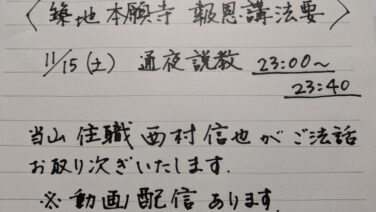 〈築地本願寺 報恩講法要〉
11/15(土) 通夜説教 23:00〜
23:40
当山住職 西村信也がご法話
お取り次ぎいたします.
※動画配信あります.